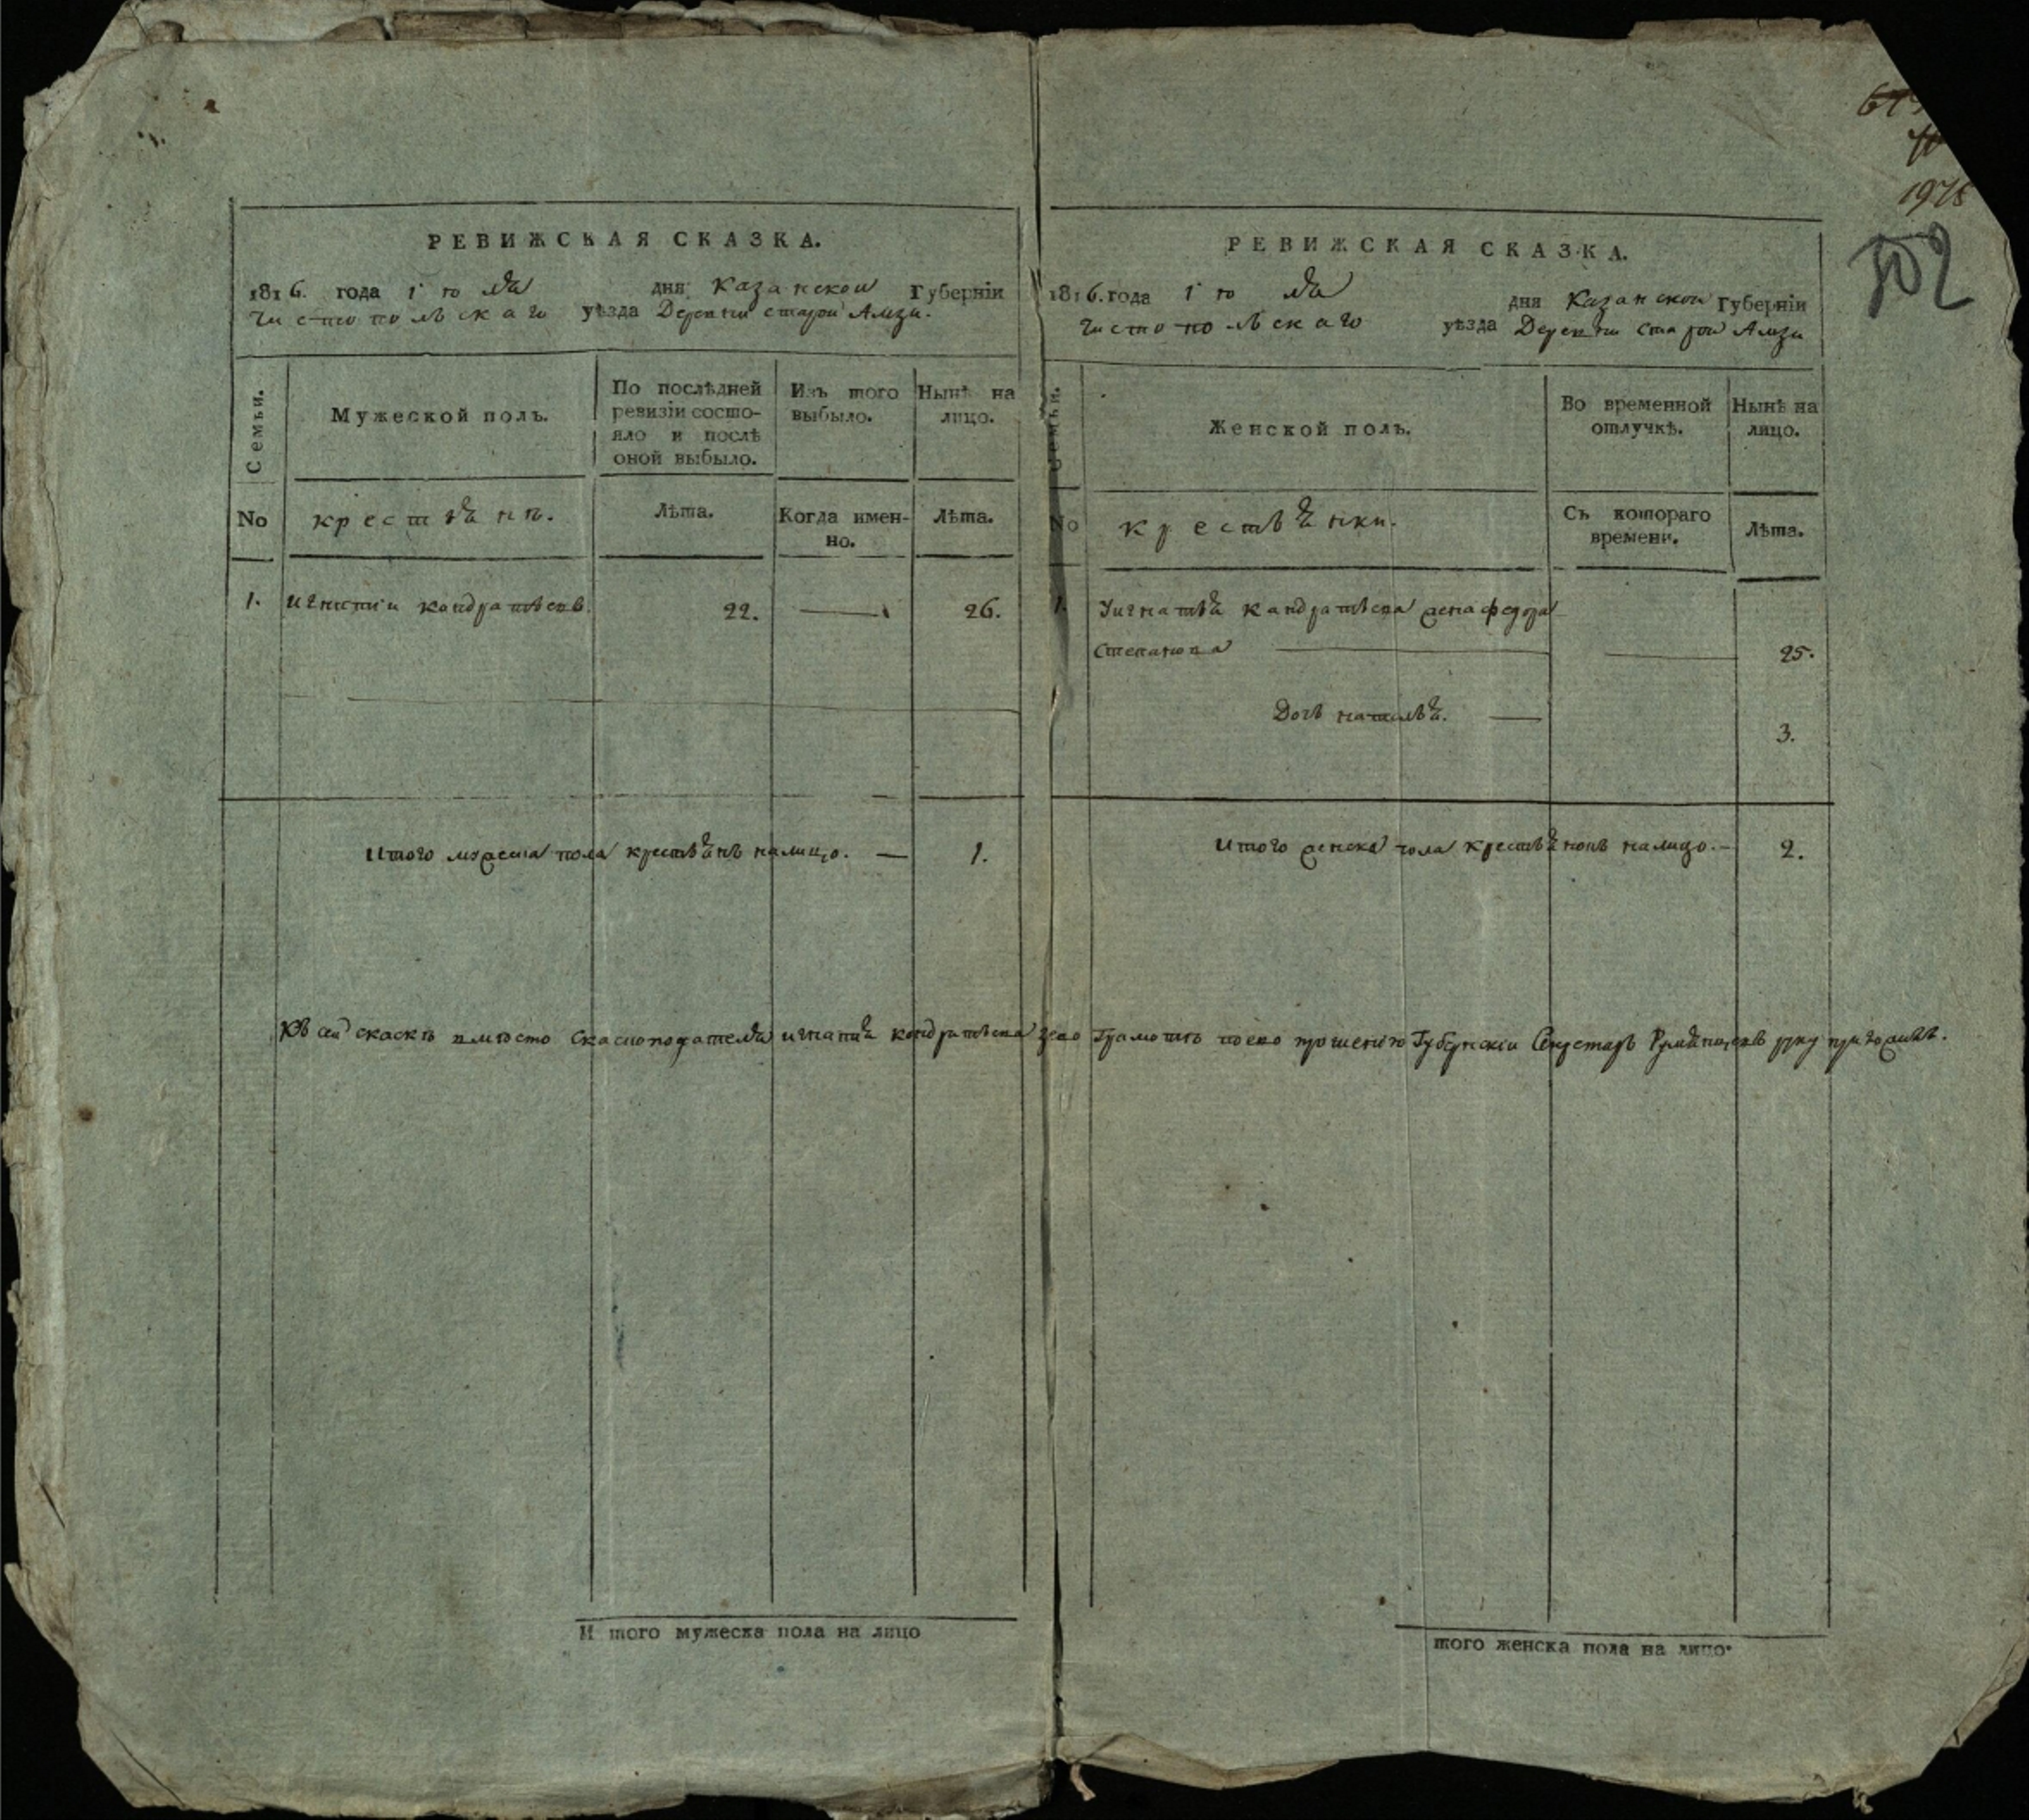 1978
502
РЕВИЖСКАЯ СКАЗКА.
1816. года іюля дня Казанской Губерніи
Чистопольскаго уѣзда Деревни старой Амзи.
Семьи.
Мужеской полъ.
По послѣдней ревизіи состо-
яло и послѣ
оной выбыло.
Изъ того
выбыло.
Нынѣ на
лицо.
No
крестьянъ.
Лѣта.
Когда имен-
но.
Лѣта.
1. Игнатіи Кандратьевъ. 22. — 26.
Итого мужеска пола крестьянъ налицо. — 1.
РЕВИЖСКАЯ СКАЗКА.
1816. года іюля дня Казанской Губерніи
Чистопольскаго уѣзда Деревни Старой Амзи
Семьи.
Женской полъ.
Во временной
отлучкѣ.
Нынѣ на
лицо.
No
крестьянки.
Съ котораго
времени.
Лѣта.
1. Уигнатья Кандратьева жена федора
Степанова — — 25.
Дочь наталья. — 3.
Итого женска пола крестьянокъ налицо. — 2.
Къ сей скаскѣ вмѣсто скаскоподателя игнатья кандратьева
грамотѣ поево прошенію Губернскіи Секретарь руку приложилъ.
И того мужеска пола на лицо
того женска пола на лицо